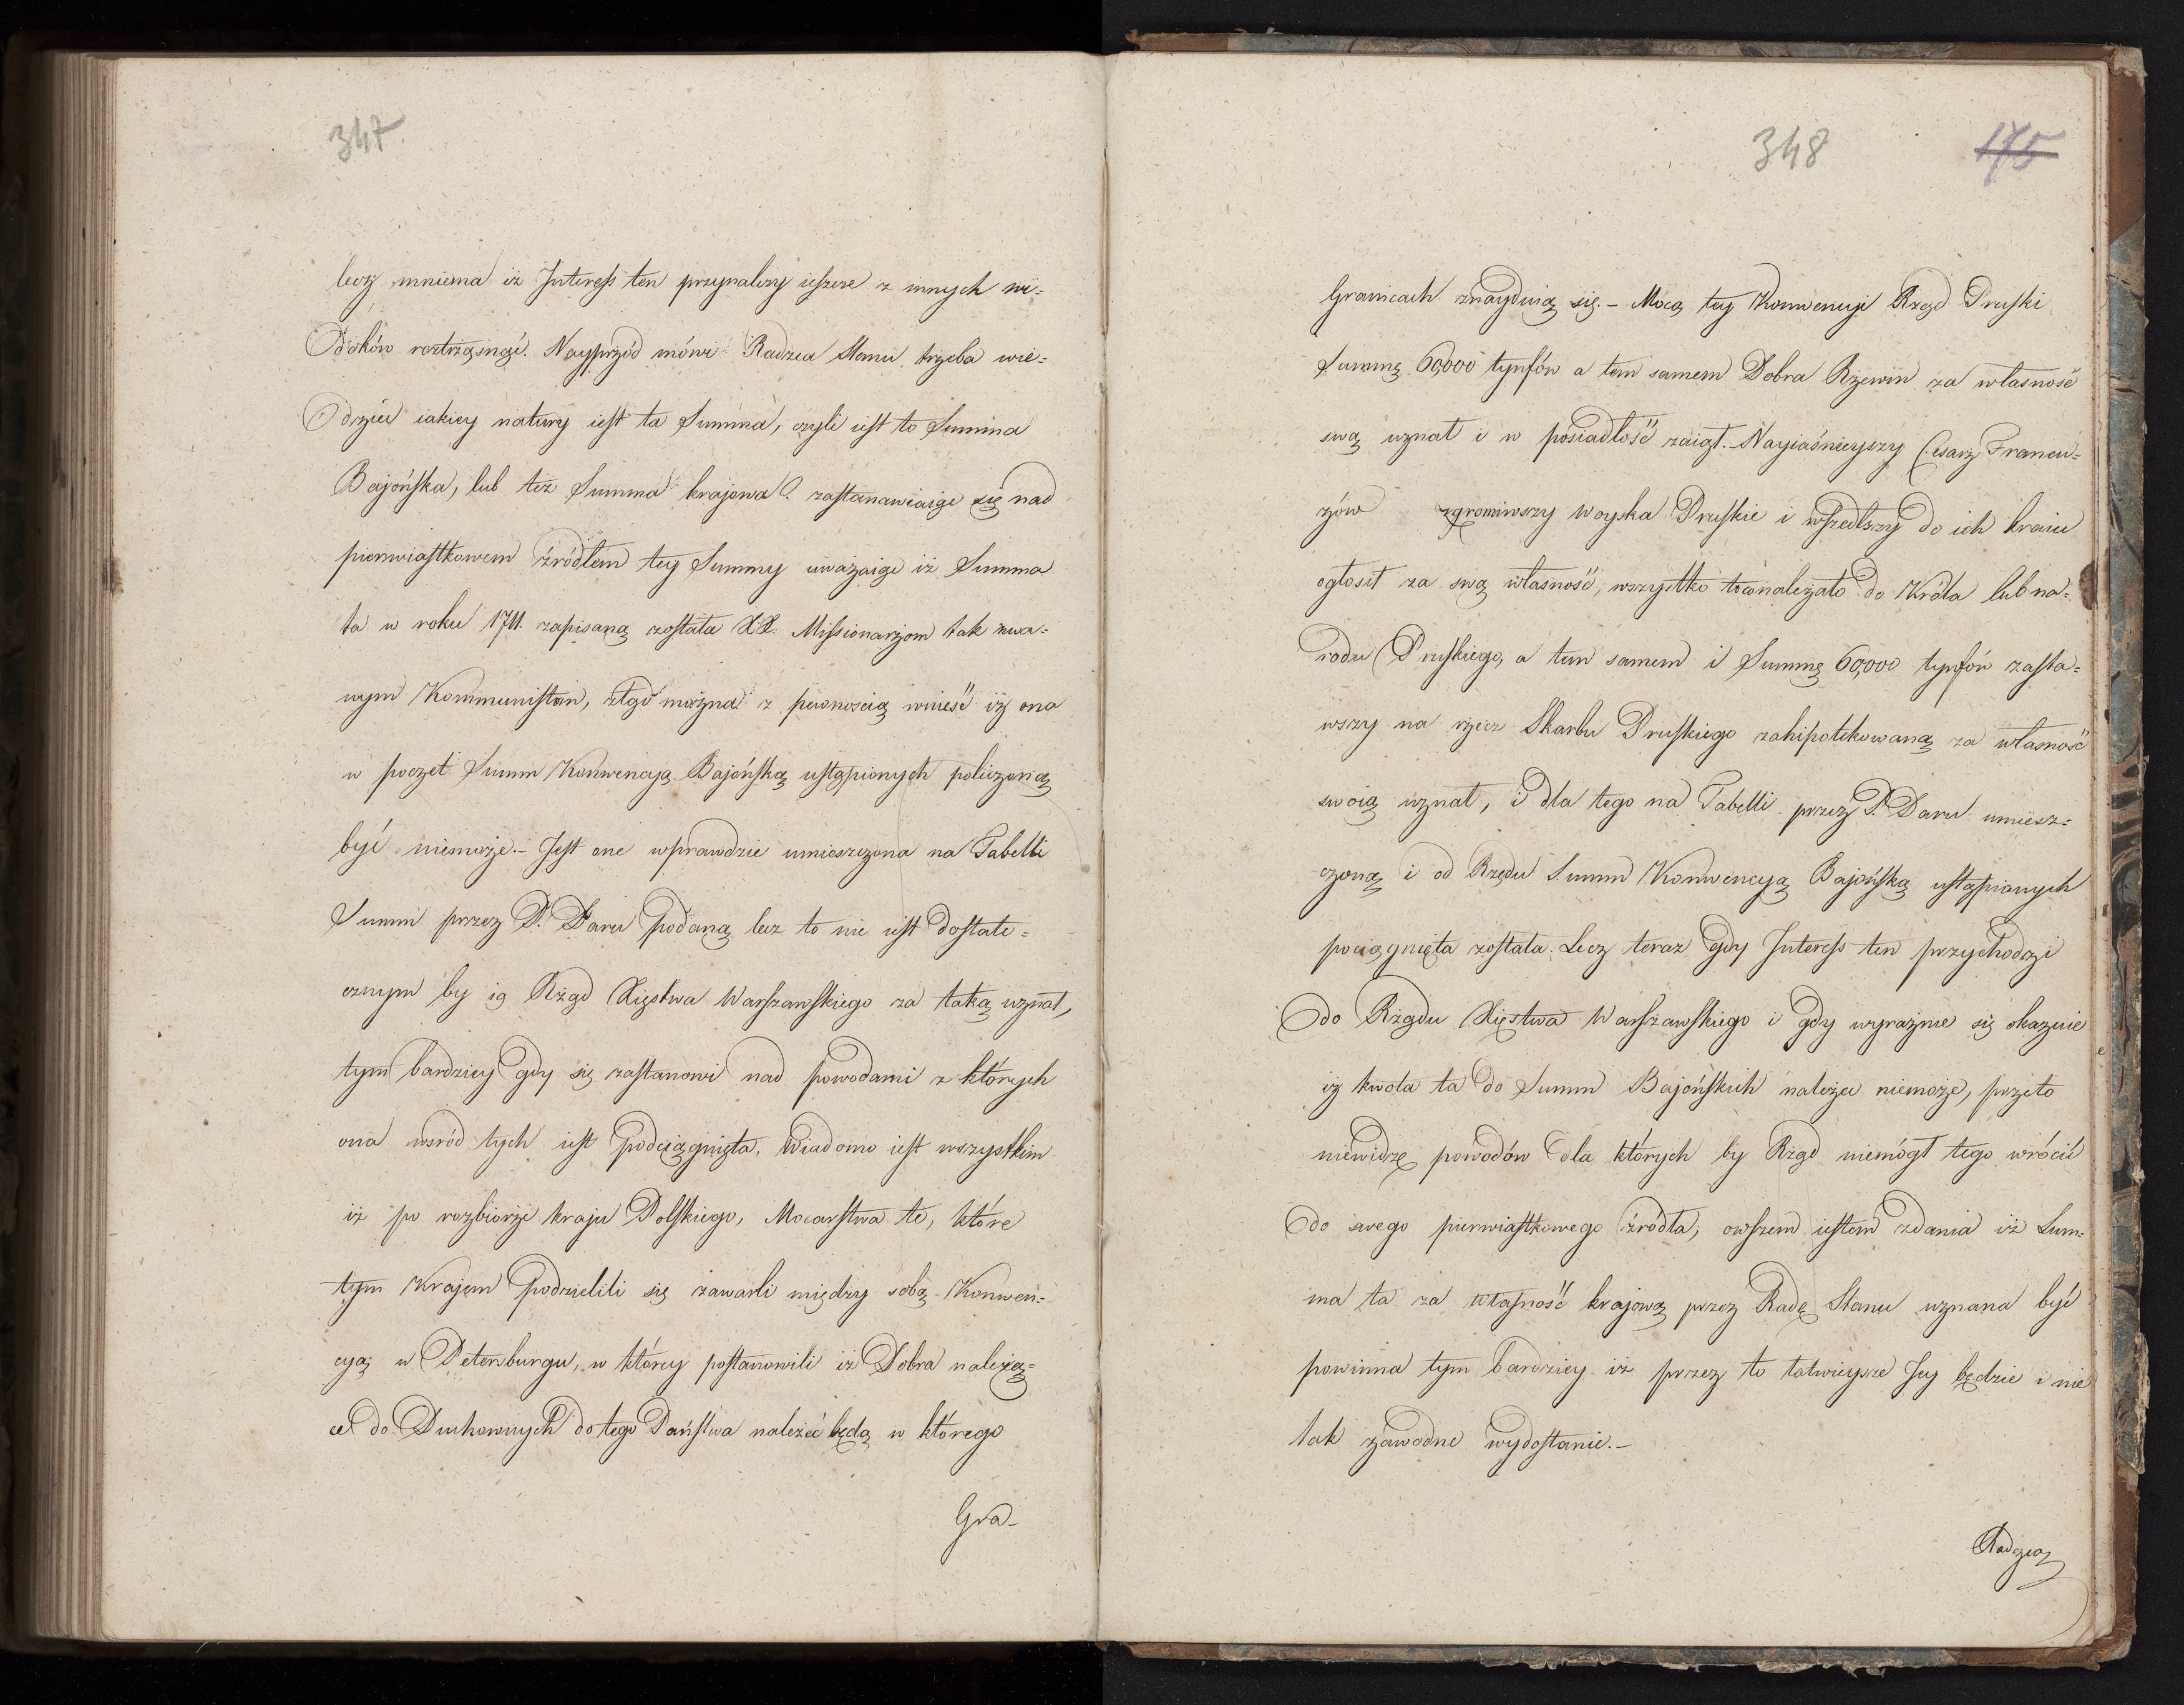 347
lecz mniema iż Interess ten przynależy ieszcze z innych wi=
doków roztrząsnąć. Nayprzód mówi Radzca Stanu trzeba wie=
dzieć iakiey natury iest ta Summa, czyli iest to Summa
Bajońska, lub też Summa krajowa? zastanawiaiąc się nad
pierwiastkowem źródłem tey Summy uważaiąc iż Summa
ta w roku 1711. zapisaną została XX. Missionarzom tak zwa=
nym Kommunistom, ztąd można z pewnością wnieść iż ona
w poczet Summ Konwencyą Bajońską ustąpionych policzoną
być niemoże.- Jest one wprawdzie umieszczona na Tabelli
Summ przez P. Daru podaną lecz to nie iest dostate=
cznym by ią Rząd Xięstwa Warszawskiego za taką uznał,
tym bardziey gdy się zastanowi nad powodami z których
ona wśród tych iest podciągnięta. Wiadomo iest wszystkim
iż po rozbiorze kraju Polskiego, Mocarstwa te, które
tym Krajem podzielili się zawarli między sobą Konwen=
cyą w Petersburgu, w którey postanowili iż Dobra należą=
ce do Duchownych do tego Państwa należeć będą w którego
Gra-
348 175
Granicach znayduią się.- Mocą tey Konwencyi Rząd Pruski
Summę 60,000 tynfów a tem samem Dobra Rzewin za własność
swą uznał i w posiadłość zaiął. Nayiaśnieyszy Cesarz Francu=
zów zgromiwszy Woyska Pruskie i wszedłszy do ich kraiu
ogłosił za swą własność, wszystko to co należało do Króla lub na=
rodu Pruskiego, a tem samem i Summę 60,000 tynfów zasta=
wszy na rzecz Skarbu Pruskiego zahipotekowaną za własność
swoią uznał, i dla tego na Tabelli przez P. Daru umiesz=
czoną i od Rzędu Summ Konwencyą Bajońską ustąpionych
pociągnięta została. Lecz teraz gdy Interess ten przychodzi
do Rządu Xięstwa Warszawskiego i gdy wyraźnie się okazuie
iż kwota ta do Summ Bajońskich należeć niemoże, przeto
niewidzę powodów dla których by Rząd niemógł tego wrócić
do swego pierwiastkowego źródła; owszem iestem zdania iż Sum=
ma ta za własność krajową przez Radę Stanu uznana być
powinna tym bardziey iż przez to łatwieysze Jey będzie i nie
tak zawodne wydostanie.-
Radzca